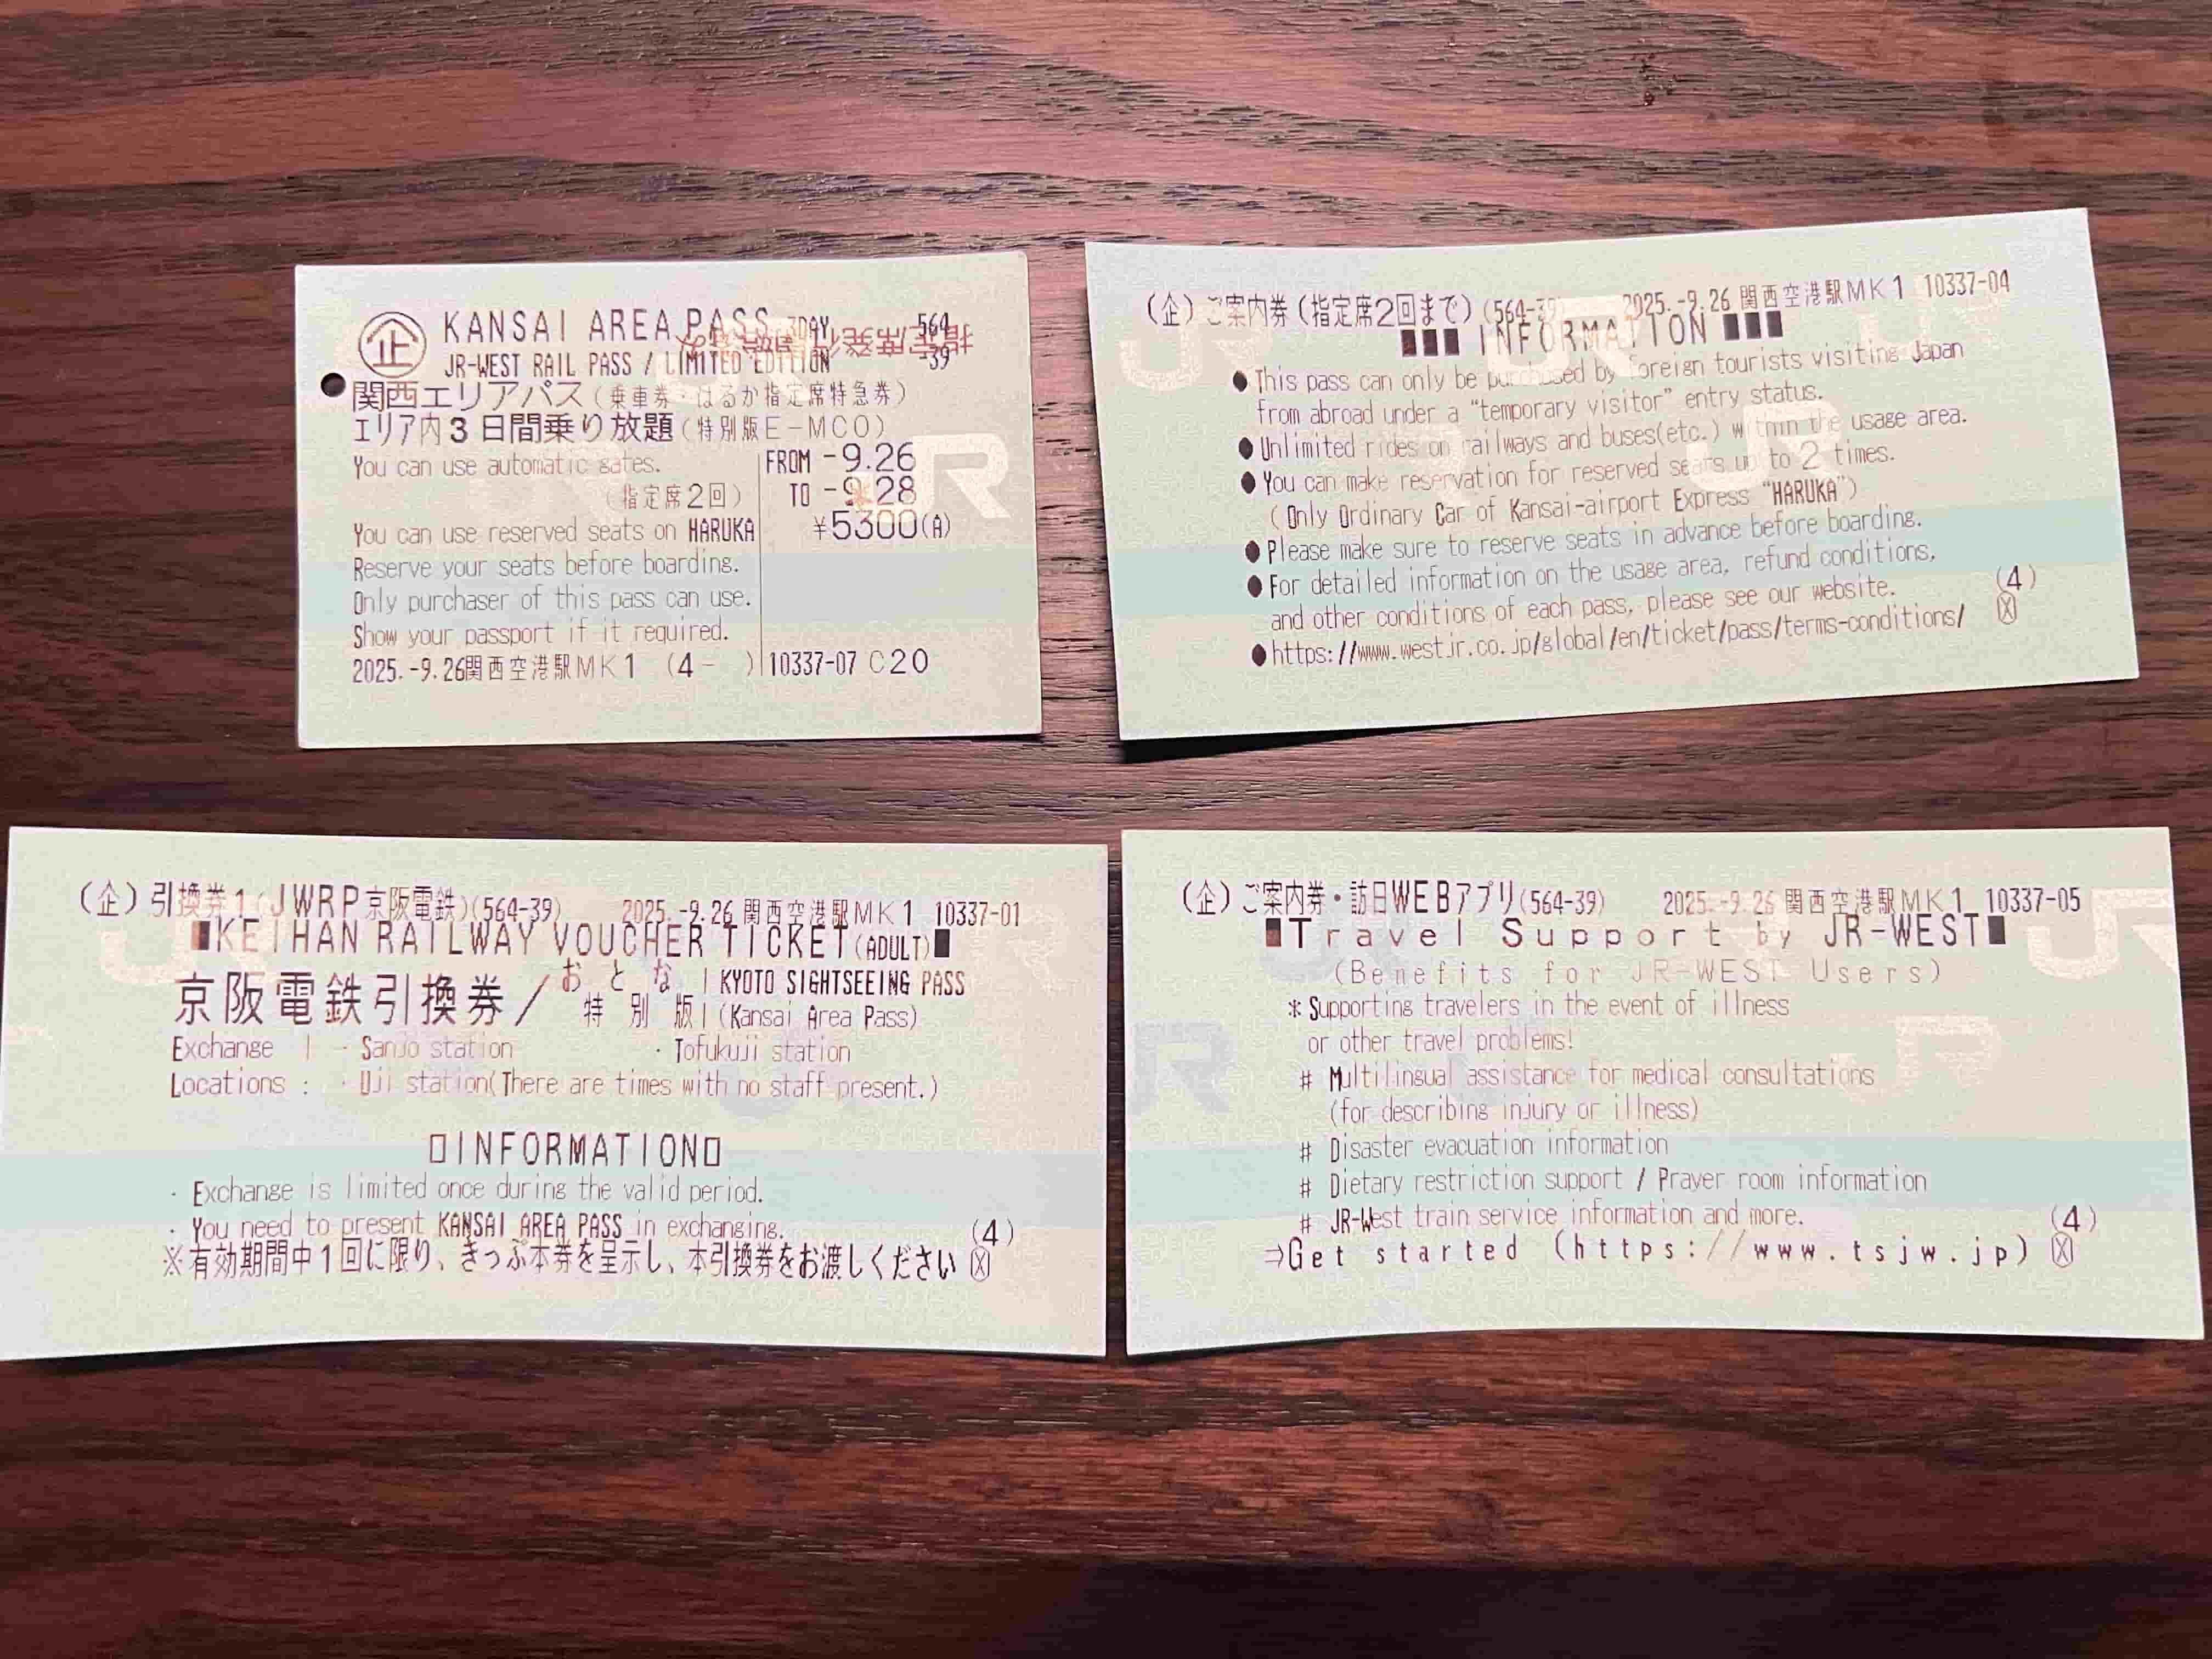 企 KANSAI AREA PASS 3DAY 564
JR-WEST RAIL PASS / LIMITED EDITION -39
関西エリアパス(乗車券・はるか指定席特急券)
エリア内3日間乗り放題(特別版E-MCO)
You can use automatic gates. FROM -9.26
(指定席2回) TO -9.28
You can use reserved seats on HARUKA ¥5300(A)
Reserve your seats before boarding.
Only purchaser of this pass can use.
Show your passport if it required.
2025.-9.26関西空港駅MK1 (4- ) 10337-07 C20
(企)ご案内券(指定席2回まで)(564-39) 2025.-9.26 関西空港駅MK1 10337-04
■■■ INFORMATION ■■■
●This pass can only be purchased by foreign tourists visiting Japan
from abroad under a "temporary visitor" entry status.
●Unlimited rides on railways and buses(etc.) within the usage area.
●You can make reservation for reserved seats up to 2 times.
(Only Ordinary Car of Kansai-airport Express "HARUKA")
●Please make sure to reserve seats in advance before boarding.
●For detailed information on the usage area, refund conditions,
and other conditions of each pass, please see our website. (4)
●https://www.westjr.co.jp/global/en/ticket/pass/terms-conditions/ ☒
(企)引換券1(JWRP京阪電鉄)(564-39) 2025.-9.26 関西空港駅MK1 10337-01
■KEIHAN RAILWAY VOUCHER TICKET(ADULT)■
京阪電鉄引換券/おとな | KYOTO SIGHTSEEING PASS
特別版 | (Kansai Area Pass)
Exchange | ・Sanjo station ・Tofukuji station
Locations : ・Uji station(There are times with no staff present.)
□INFORMATION□
・Exchange is limited once during the valid period.
・You need to present KANSAI AREA PASS in exchanging. (4)
※有効期間中1回に限り、きっぷ本券を呈示し、本引換券をお渡しください ☒
(企)ご案内券・訪日WEBアプリ(564-39) 2025.-9.26 関西空港駅MK1 10337-05
■Travel Support by JR-WEST■
(Benefits for JR-WEST Users)
*Supporting travelers in the event of illness
or other travel problems!
# Multilingual assistance for medical consultations
(for describing injury or illness)
# Disaster evacuation information
# Dietary restriction support / Prayer room information
# JR-West train service information and more. (4)
⇒Get started (https://www.tsjw.jp) ☒